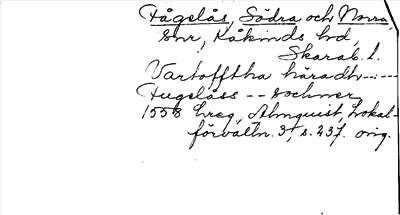 Fågelås, Södra och Norra,
snr, Kåkinds hd,
Skarab. l.
Vartofftha häradh -..-
Fugelåss -- sochner
1558 hreg, Almquist, Lokal-
förvaltn. 3, s. 237. orig.